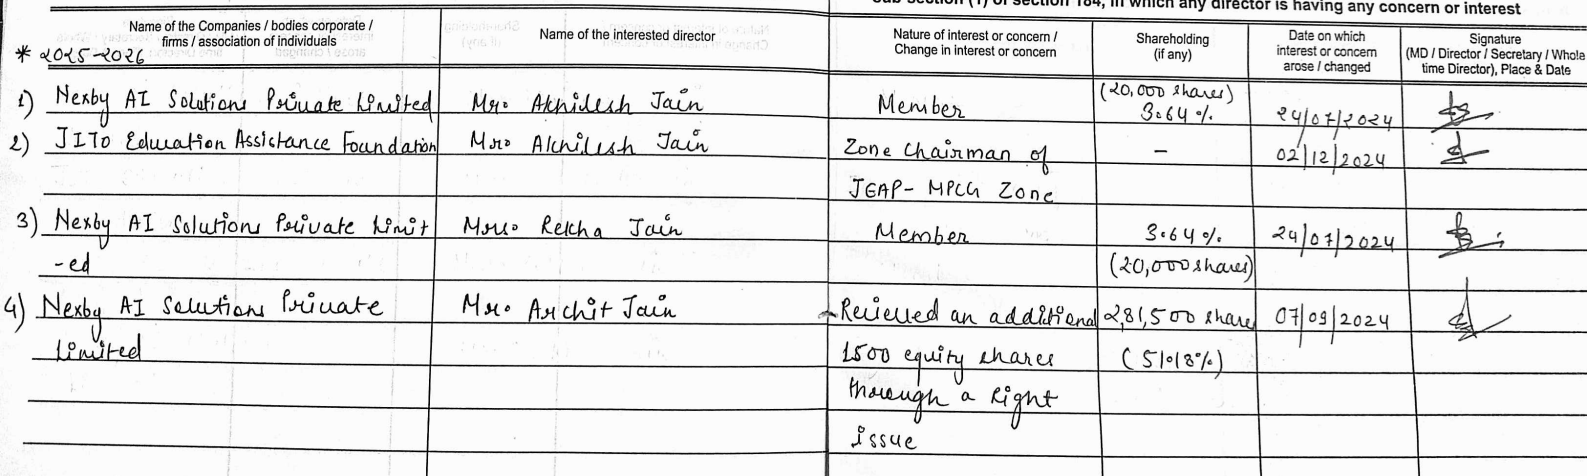 sub-section (1) of section 184, in which any director is having any concern or interest
Name of the Companies / bodies corporate / firms / association of individuals
Name of the interested director
Nature of interest or concern / Change in interest or concern
Shareholding (if any)
Date on which interest or concern arose / changed
Signature (MD / Director / Secretary / Whole time Director), Place & Date
* 2025-2026
1) Nexby AI Solutions Private Limited Mr. Akhilesh Jain Member (20,000 shares) 3.64% 24/07/2024
2) JITO Education Assistance Foundation Mr. Akhilesh Jain Zone Chairman of — 02/12/2024
JEAP- MPCG Zone
3) Nexby AI Solutions Private Limit Mrs. Rekha Jain Member 3.64% 24/07/2024
-ed (20,000 shares)
4) Nexby AI Solutions Private Mr. Archit Jain Recieved an additional 2,81,500 share 07/09/2024
Limited 1500 equity shares (51.18%)
through a Right
issue